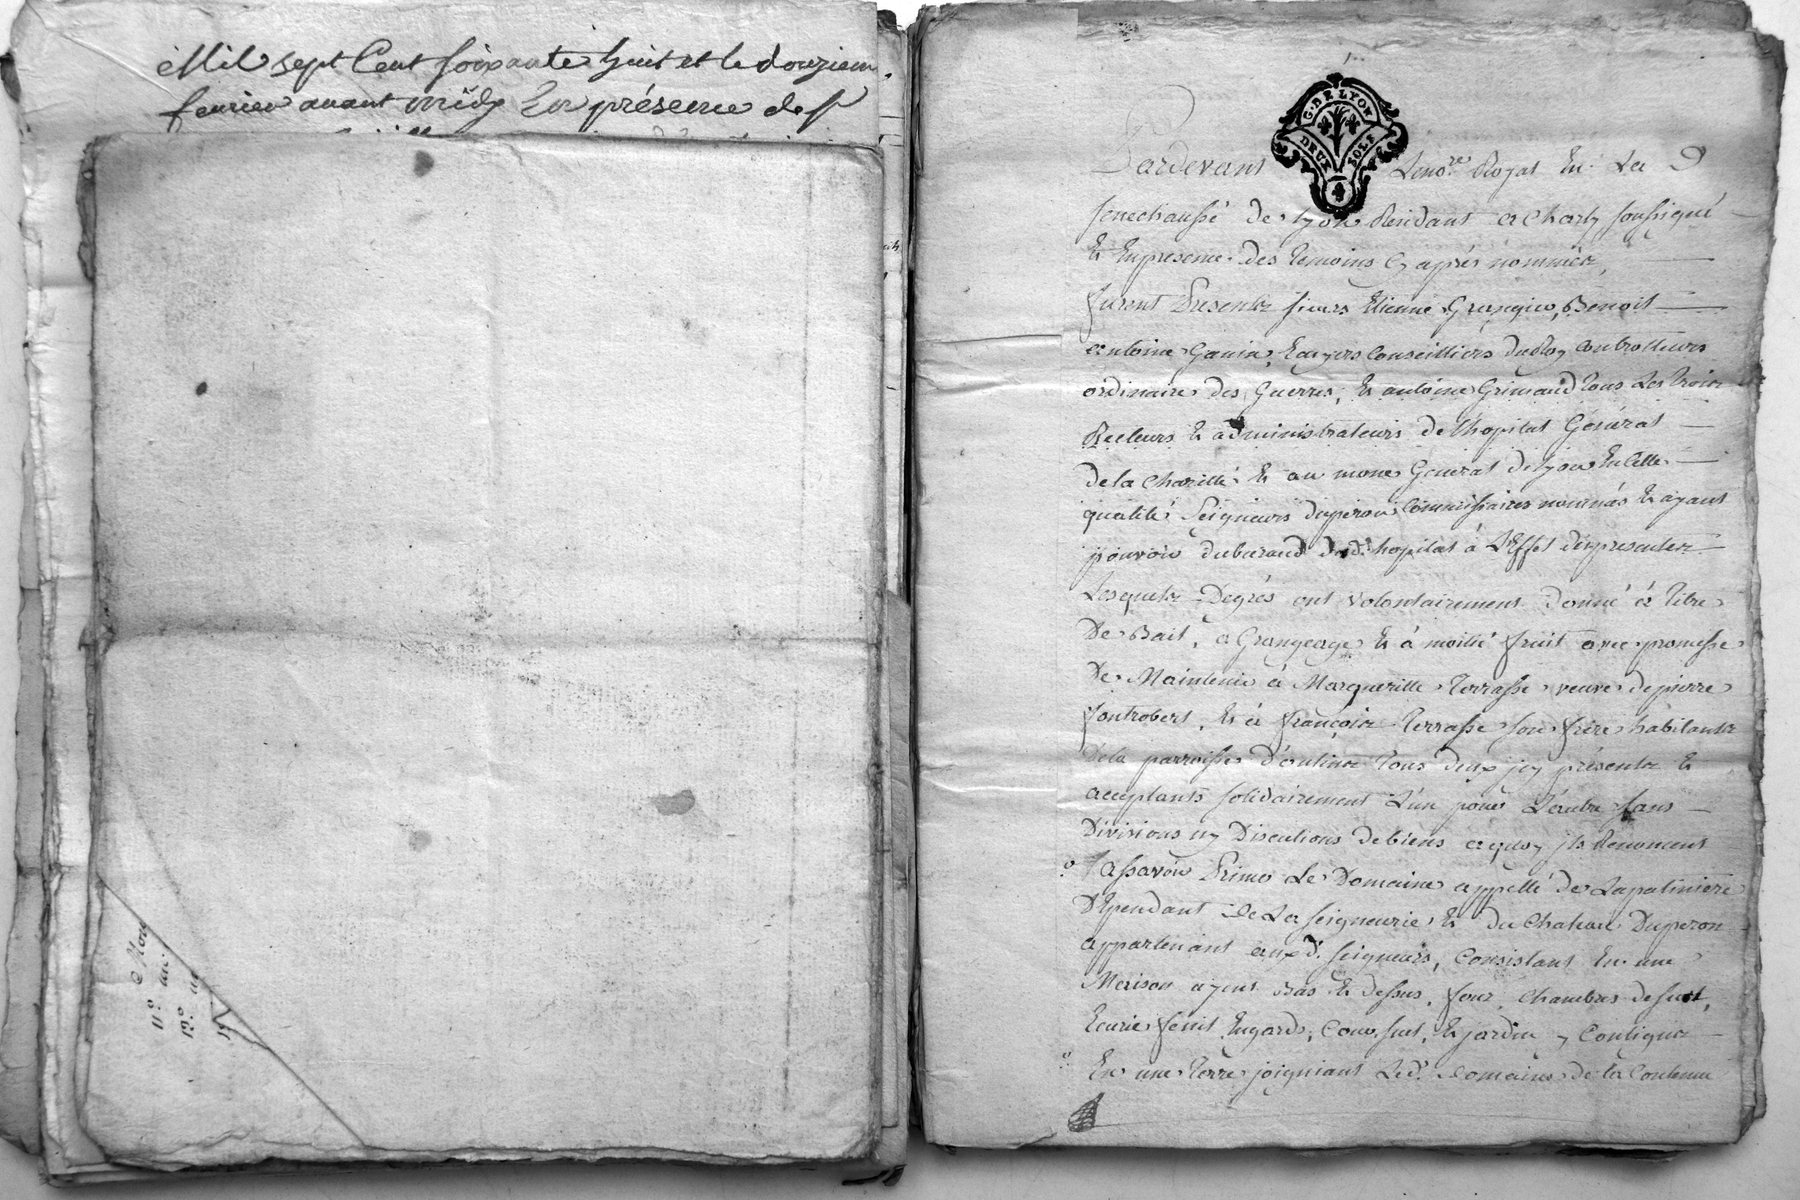 Mil sept Cent soixante huit et le douziem
feurier auant midy En présence de sr
11º
12º
G. DE LYON
DEUX SOLS
Pardevant Leno.re Royal En La
senechaussé de lyon Residant a Charly soussigné
Et En presence des temoins cy aprés nommés,
furent Presents sieurs Etienne Benoit
antoine Ganin, Ecuyers Conseilliers du Roy Controlleurs
ordinaire des Guerres, Et antoine Grimaud tous Les trois
Recteurs Et administrateurs de l'hopital Général
de la Charitté Et au mone Général de lyon En Cette
qualité Seigneurs duperon Commissaires nommés Et ayant
pouvoir dubureaud dud. hopital á L'Effet des presentes
Lesquels Degrés ont volontairement Donné á titre
De Bail, a Grangeage Et á moitié fruit avec promesse
De Maintenir á Margueritte terrasse veuve de pierre
fontrobert, Et á françois terrasse son frere habitants
Dela parroisse d'oulins tous deux jcy présents Et
acceptants solidairement L'un pour L'autre sans
Divisions ny Discutions de biens aquoy jls Renoncent
Assavoir Primo Le Domaine appellé de Lapatiniere
Dépendant de La seigneurie Et du Chateau Duperon
appartenant auxd. seigneurs, Consistant En une
Maison ayant Bas Et Dessus, four, Chambres dessus,
Ecurie fenil Engards, Cour, Et jardin y Contigus
En une terre joigniant Led. Domaine de la Contenue